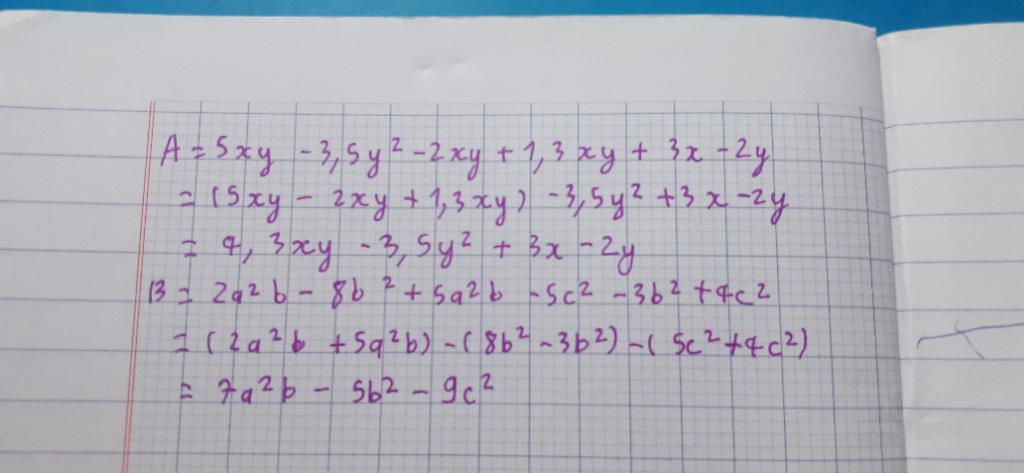 A = 5xy - 3,5y² - 2xy + 1,3xy + 3x - 2y
= (5xy - 2xy + 1,3xy) - 3,5y² + 3x - 2y
= 4,3xy - 3,5y² + 3x - 2y
B = 2a²b - 8b² + 5a²b - 5c² - 3b² + 4c²
= (2a²b + 5a²b) - (8b² - 3b²) - (5c² + 4c²)
= 7a²b - 5b² - 9c²